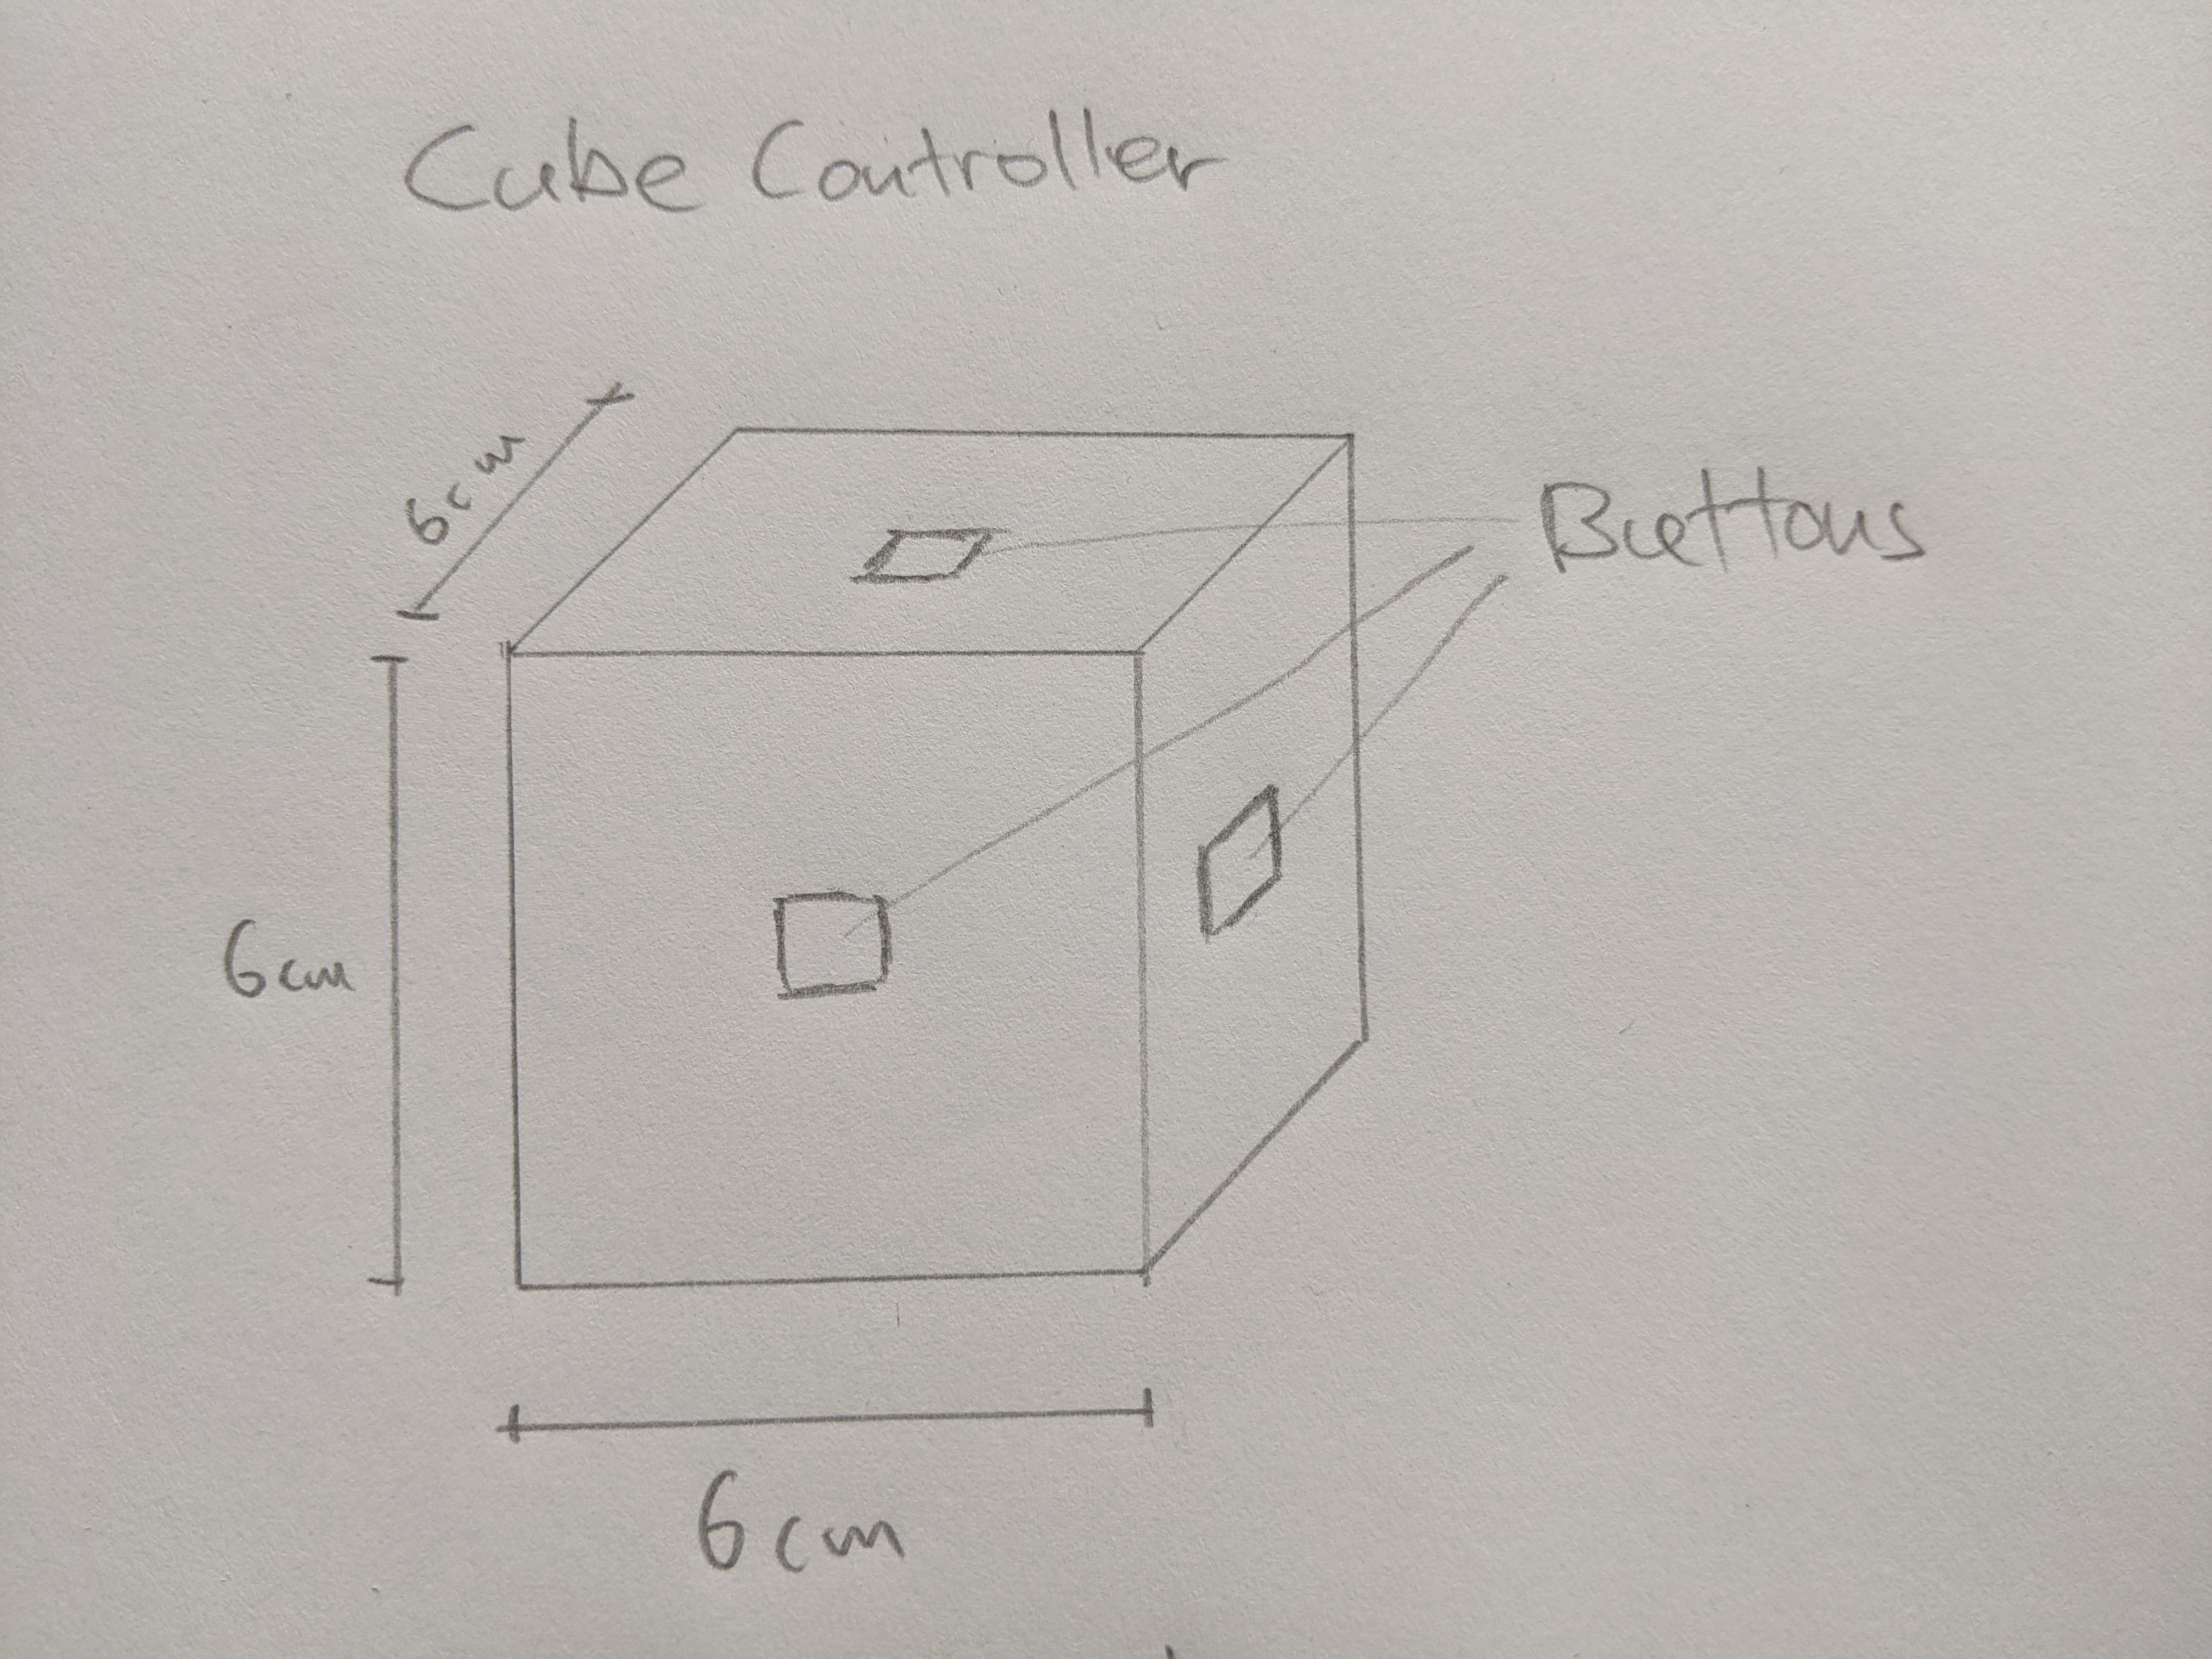 Cube Controller
6cm
Buttons
6cm
6cm